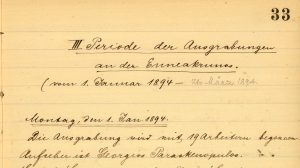 33
III. Periode der Ausgrabungen
an der Enneakrunos.
(vom 1. Januar 1894 — 26 März 1894.
Montag, den 1. Jan 1894.
Die Ausgrabung wird mit 19 Arbeitern begonnen
Aufseher ist Georgios Paraskevopulos.